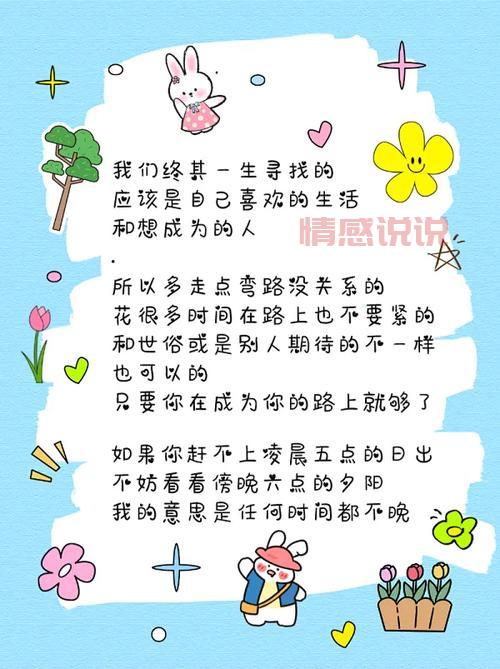 我们终其一生寻找的
应该是自己喜欢的生活
和想成为的人
情感说说
.
所以多走点弯路没关系的
花很多时间在路上也不要紧的
和世俗或是别人期待的不一样
也可以的
只要你在成为你的路上就够了
如果你赶不上凌晨五点的日出
不妨看看傍晚六点的夕阳
我的意思是任何时间都不晚